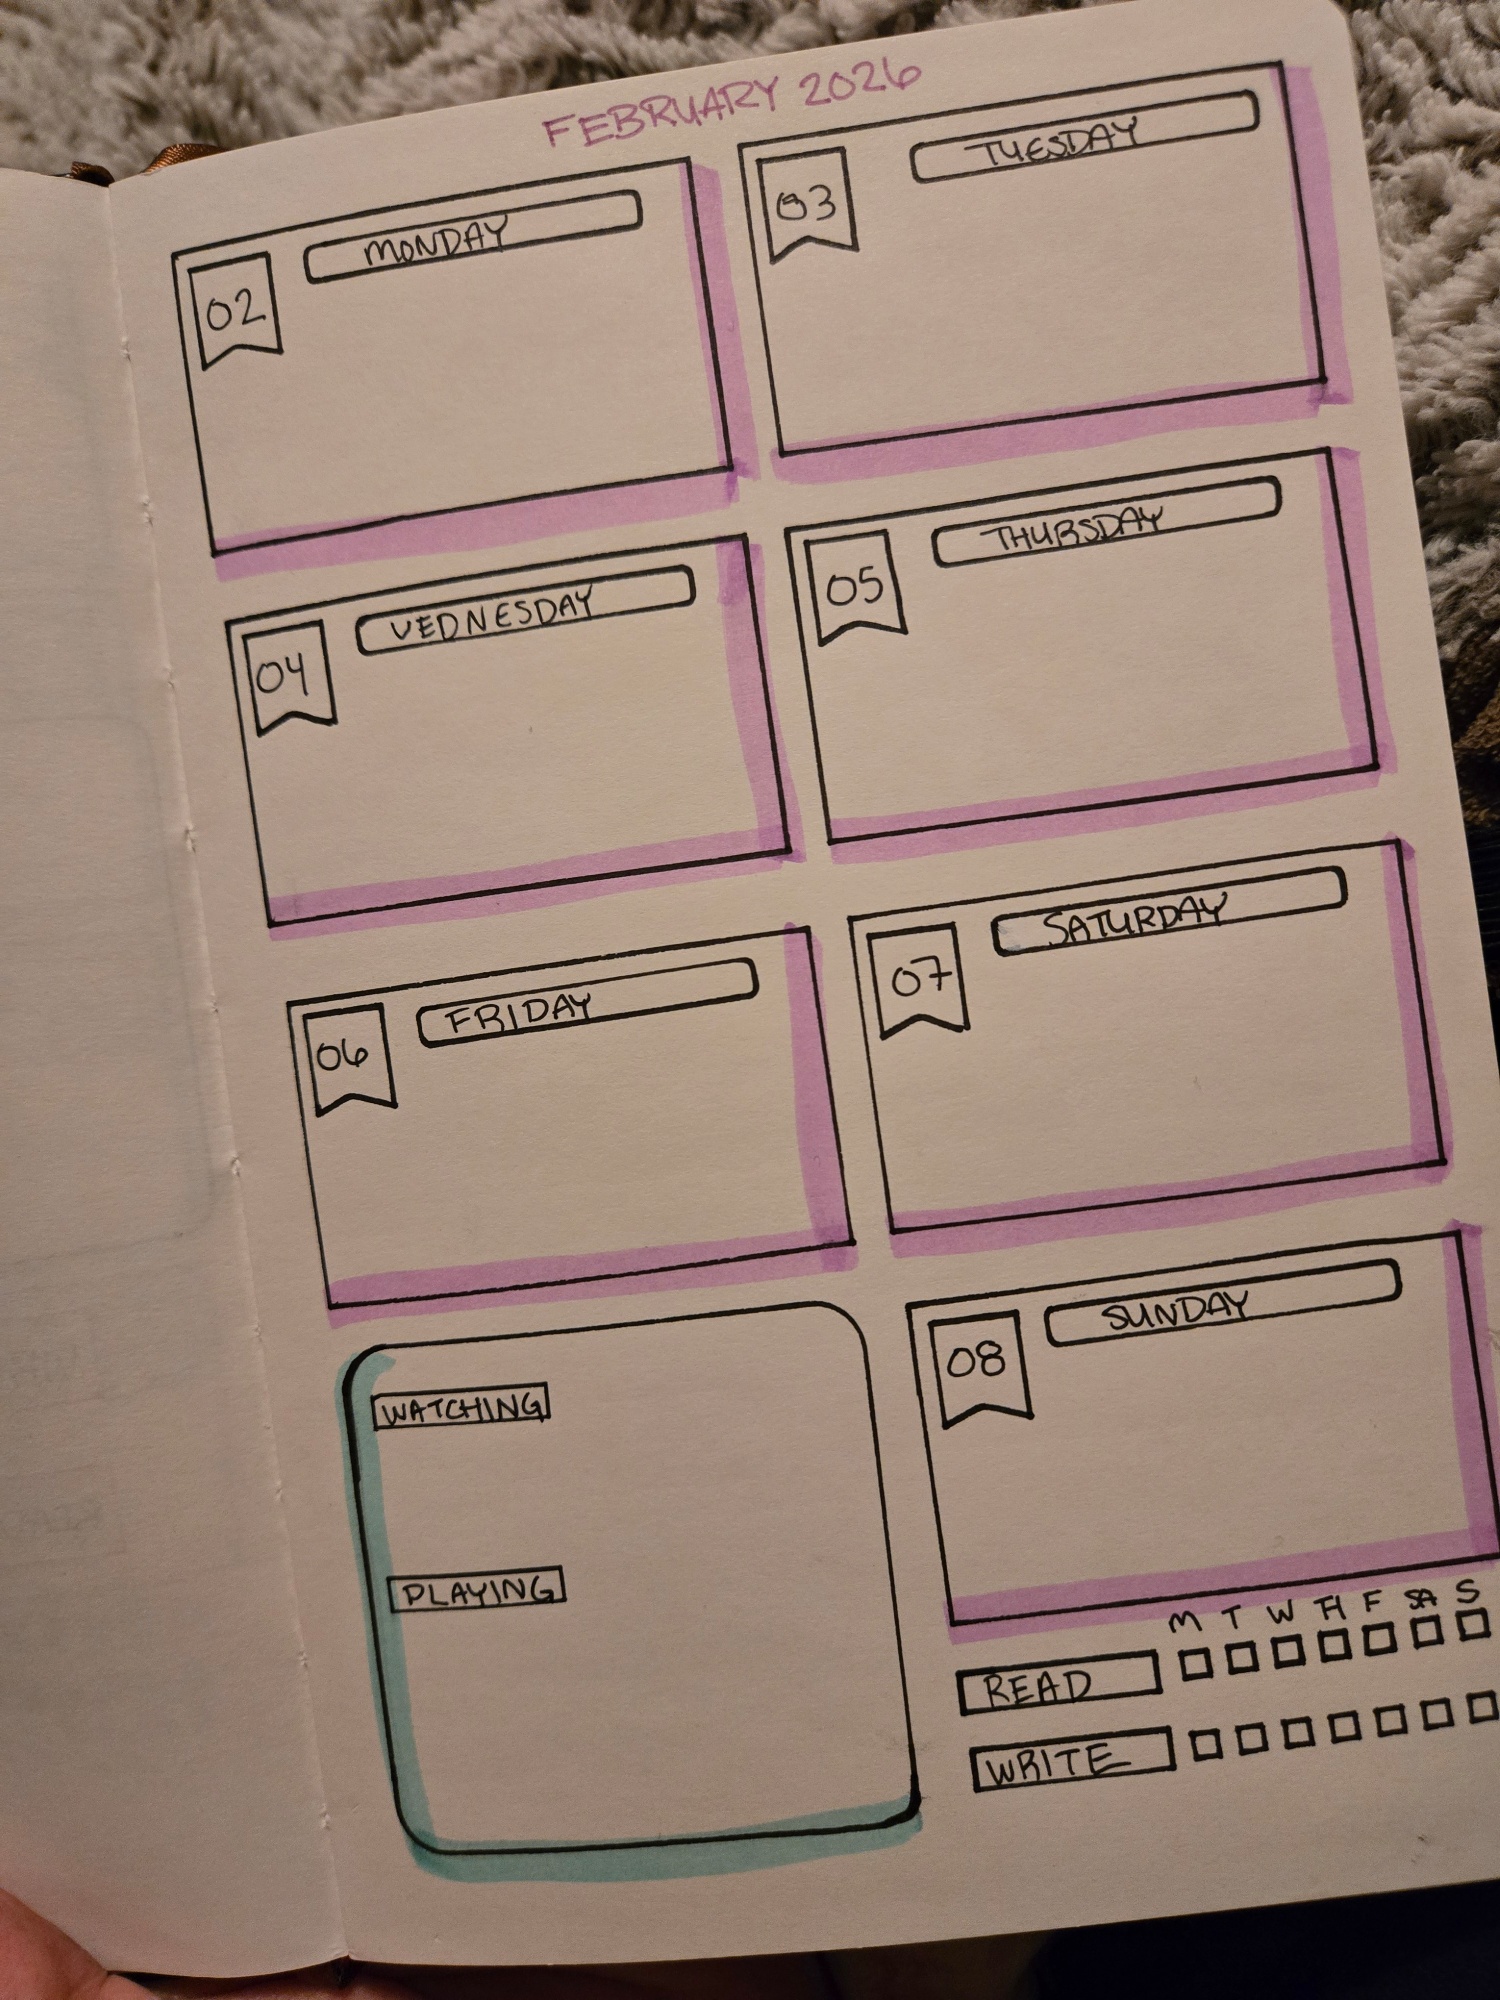 FEBRUARY 2026
02 MONDAY
03 TUESDAY
04 VEDNESDAY
05 THURSDAY
06 FRIDAY
07 SATURDAY
WATCHING
PLAYING
08 SUNDAY
M T W TH F SA S
READ
WRITE